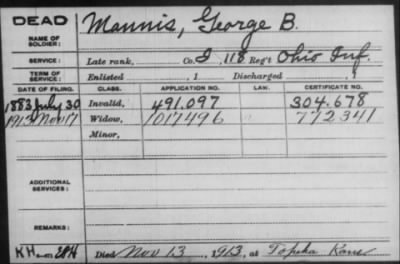 DEAD
NAME OF SOLDIER: Mannis, George B.
SERVICE: Late rank, Co. I, 118 Reg't Ohio Inf.
TERM OF SERVICE: Enlisted , 1 Discharged , 1
DATE OF FILING. CLASS. APPLICATION NO. LAW. CERTIFICATE NO.
1883 July 30 Invalid, 491.097 304.678
1913 Nov 17 Widow, 1017496 772341
Minor,
ADDITIONAL SERVICES:
REMARKS:
Died Nov 13, 1913, at Topeka Kans